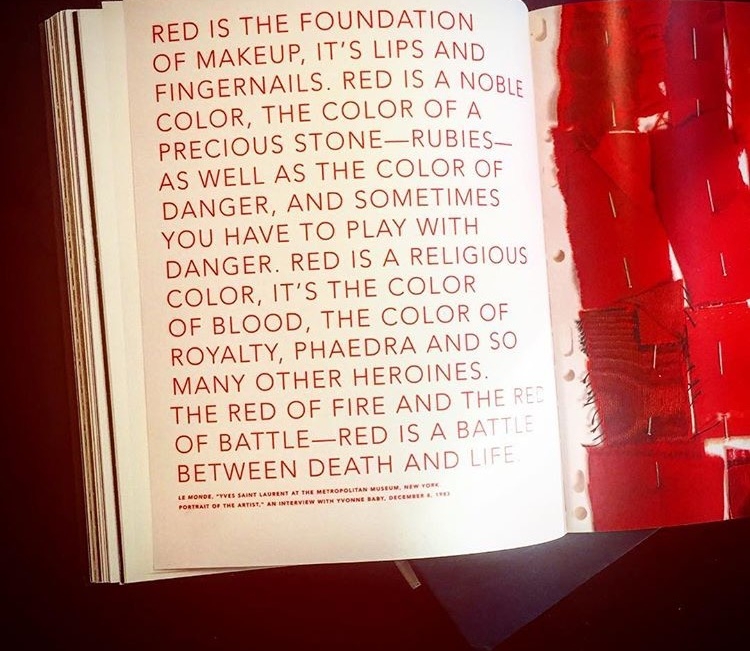 RED IS THE FOUNDATION
OF MAKEUP, IT'S LIPS AND
FINGERNAILS. RED IS A NOBLE
COLOR, THE COLOR OF A
PRECIOUS STONE—RUBIES—
AS WELL AS THE COLOR OF
DANGER, AND SOMETIMES
YOU HAVE TO PLAY WITH
DANGER. RED IS A RELIGIOUS
COLOR, IT'S THE COLOR
OF BLOOD, THE COLOR OF
ROYALTY, PHAEDRA AND SO
MANY OTHER HEROINES.
THE RED OF FIRE AND THE RED
OF BATTLE—RED IS A BATTLE
BETWEEN DEATH AND LIFE
LE MONDE, "YVES SAINT LAURENT AT THE METROPOLITAN MUSEUM, NEW YORK
PORTRAIT OF THE ARTIST," AN INTERVIEW WITH YVONNE BABY, DECEMBER 8, 1983